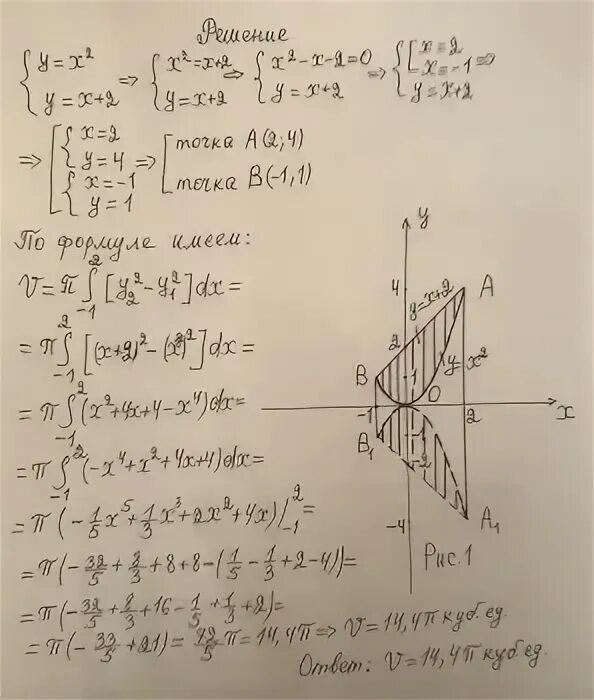 Решение
{ y = x² ; y = x+2 => { x² = x+2 ; y = x+2 => { x² - x - 2 = 0 ; y = x+2 => { [ x = 2 ; x = -1 ; y = x+2 =>
=> [ { x = 2 ; y = 4 ; { x = -1 ; y = 1 => [ точка A(2;4) ; точка B(-1,1)
По формуле имеем:
V = π ∫₋₁² [y₂² - y₁²] dx =
= π ∫₋₁² [(x+2)² - (x²)²] dx =
= π ∫₋₁² (x² + 4x + 4 - x⁴) dx =
= π ∫₋₁² (-x⁴ + x² + 4x + 4) dx =
= π (-1/5 x⁵ + 1/3 x³ + 2x² + 4x) |₋₁² =
= π (-32/5 + 8/3 + 8 + 8 - (1/5 - 1/3 + 2 - 4)) =
= π (-32/5 + 8/3 + 16 - 1/5 + 1/3 + 2) =
= π (-33/5 + 21) = 72/5 π = 14,4π => V = 14,4π куб ед.
Ответ: V = 14,4π куб ед.
y
4
A
y = x+2
2
y = x²
B
1
O
-1
2
x
B₁
-1
-2
-4
A₁
Рис. 1